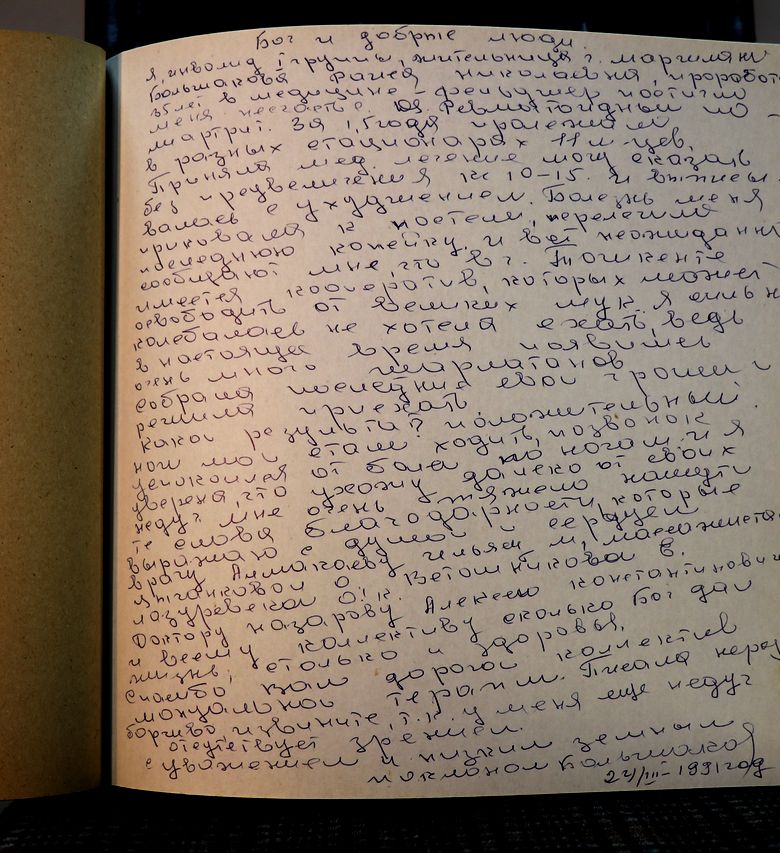 Бог и добрые люди.
Я, инвалид I группы, жительница г. Маргилана
Большакова Раиса Николаевна, проработ
35 лет в медицине - фельдшер постигло
меня несчастье. Ревматоидный по
лиартрит. За 1,5 года пролежала
в разных стационарах 11 м-цев,
Приняла мед. лечение могу сказать
без преувеличения к-с 10-15. И выписы
валась с ухудшением. Болезнь меня
приковала к постели, перелечила
последнюю копейку. и вот неожиданно
сообщают мне, что в г. Ташкенте
имеется кооператив, которых может
освободить от великих мук. Я очень
колебалась не хотела ехать, ведь
в настоящее время появилось
очень много шарлатанов
собрала последние свои гроши и
решила приехать
Какой результат? положительный.
ноги мои стали ходить, позвонок
успокоился от боли по ногам. и я
уверена, что ухожу далеко от своих
недуг. мне очень тяжело найти
те слова благодарности, которые
выражаю с душой и сердцем
врачу Алмакаеву Ильясу И, массажиста
Цыганковой О. Ветошникова В.
Лазуревской О.К.
Доктору Назарову Алексею Константинович
и всему коллективу сколько Бог дал
жизнь, столько и здоровья.
Спасибо вам дорогой коллектив
мануальной терапии. Писала нераз
борчиво, извините, т.к. у меня еще недуг
отсутствует зрение.
с уважением и низким земным
поклоном Большакова
24/III-1991 год